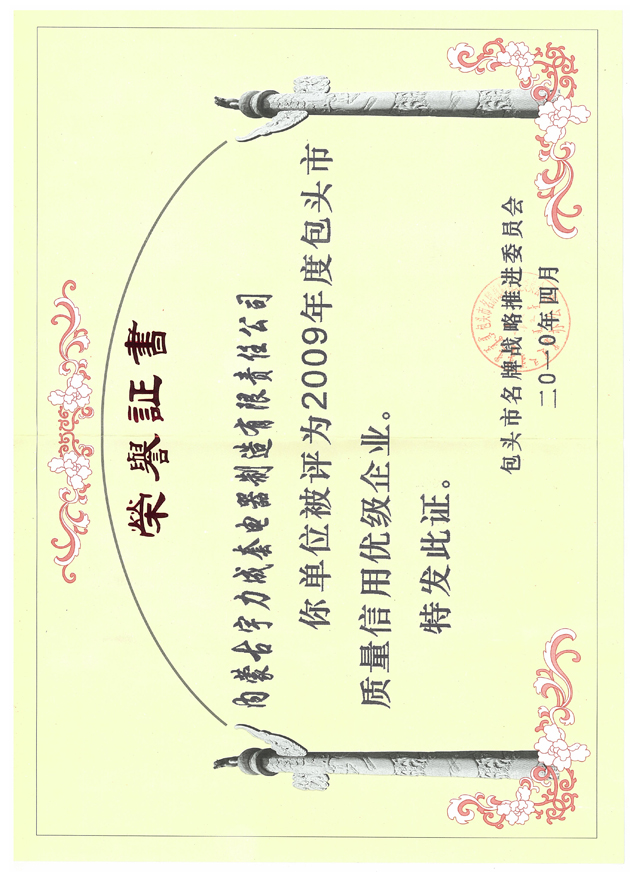 榮譽証書
内蒙古宇力成套电器制造有限责任公司
你单位被评为2009年度包头市
质量信用优级企业。
特发此证。
包头市名牌战略推进委员会
二〇一〇年四月